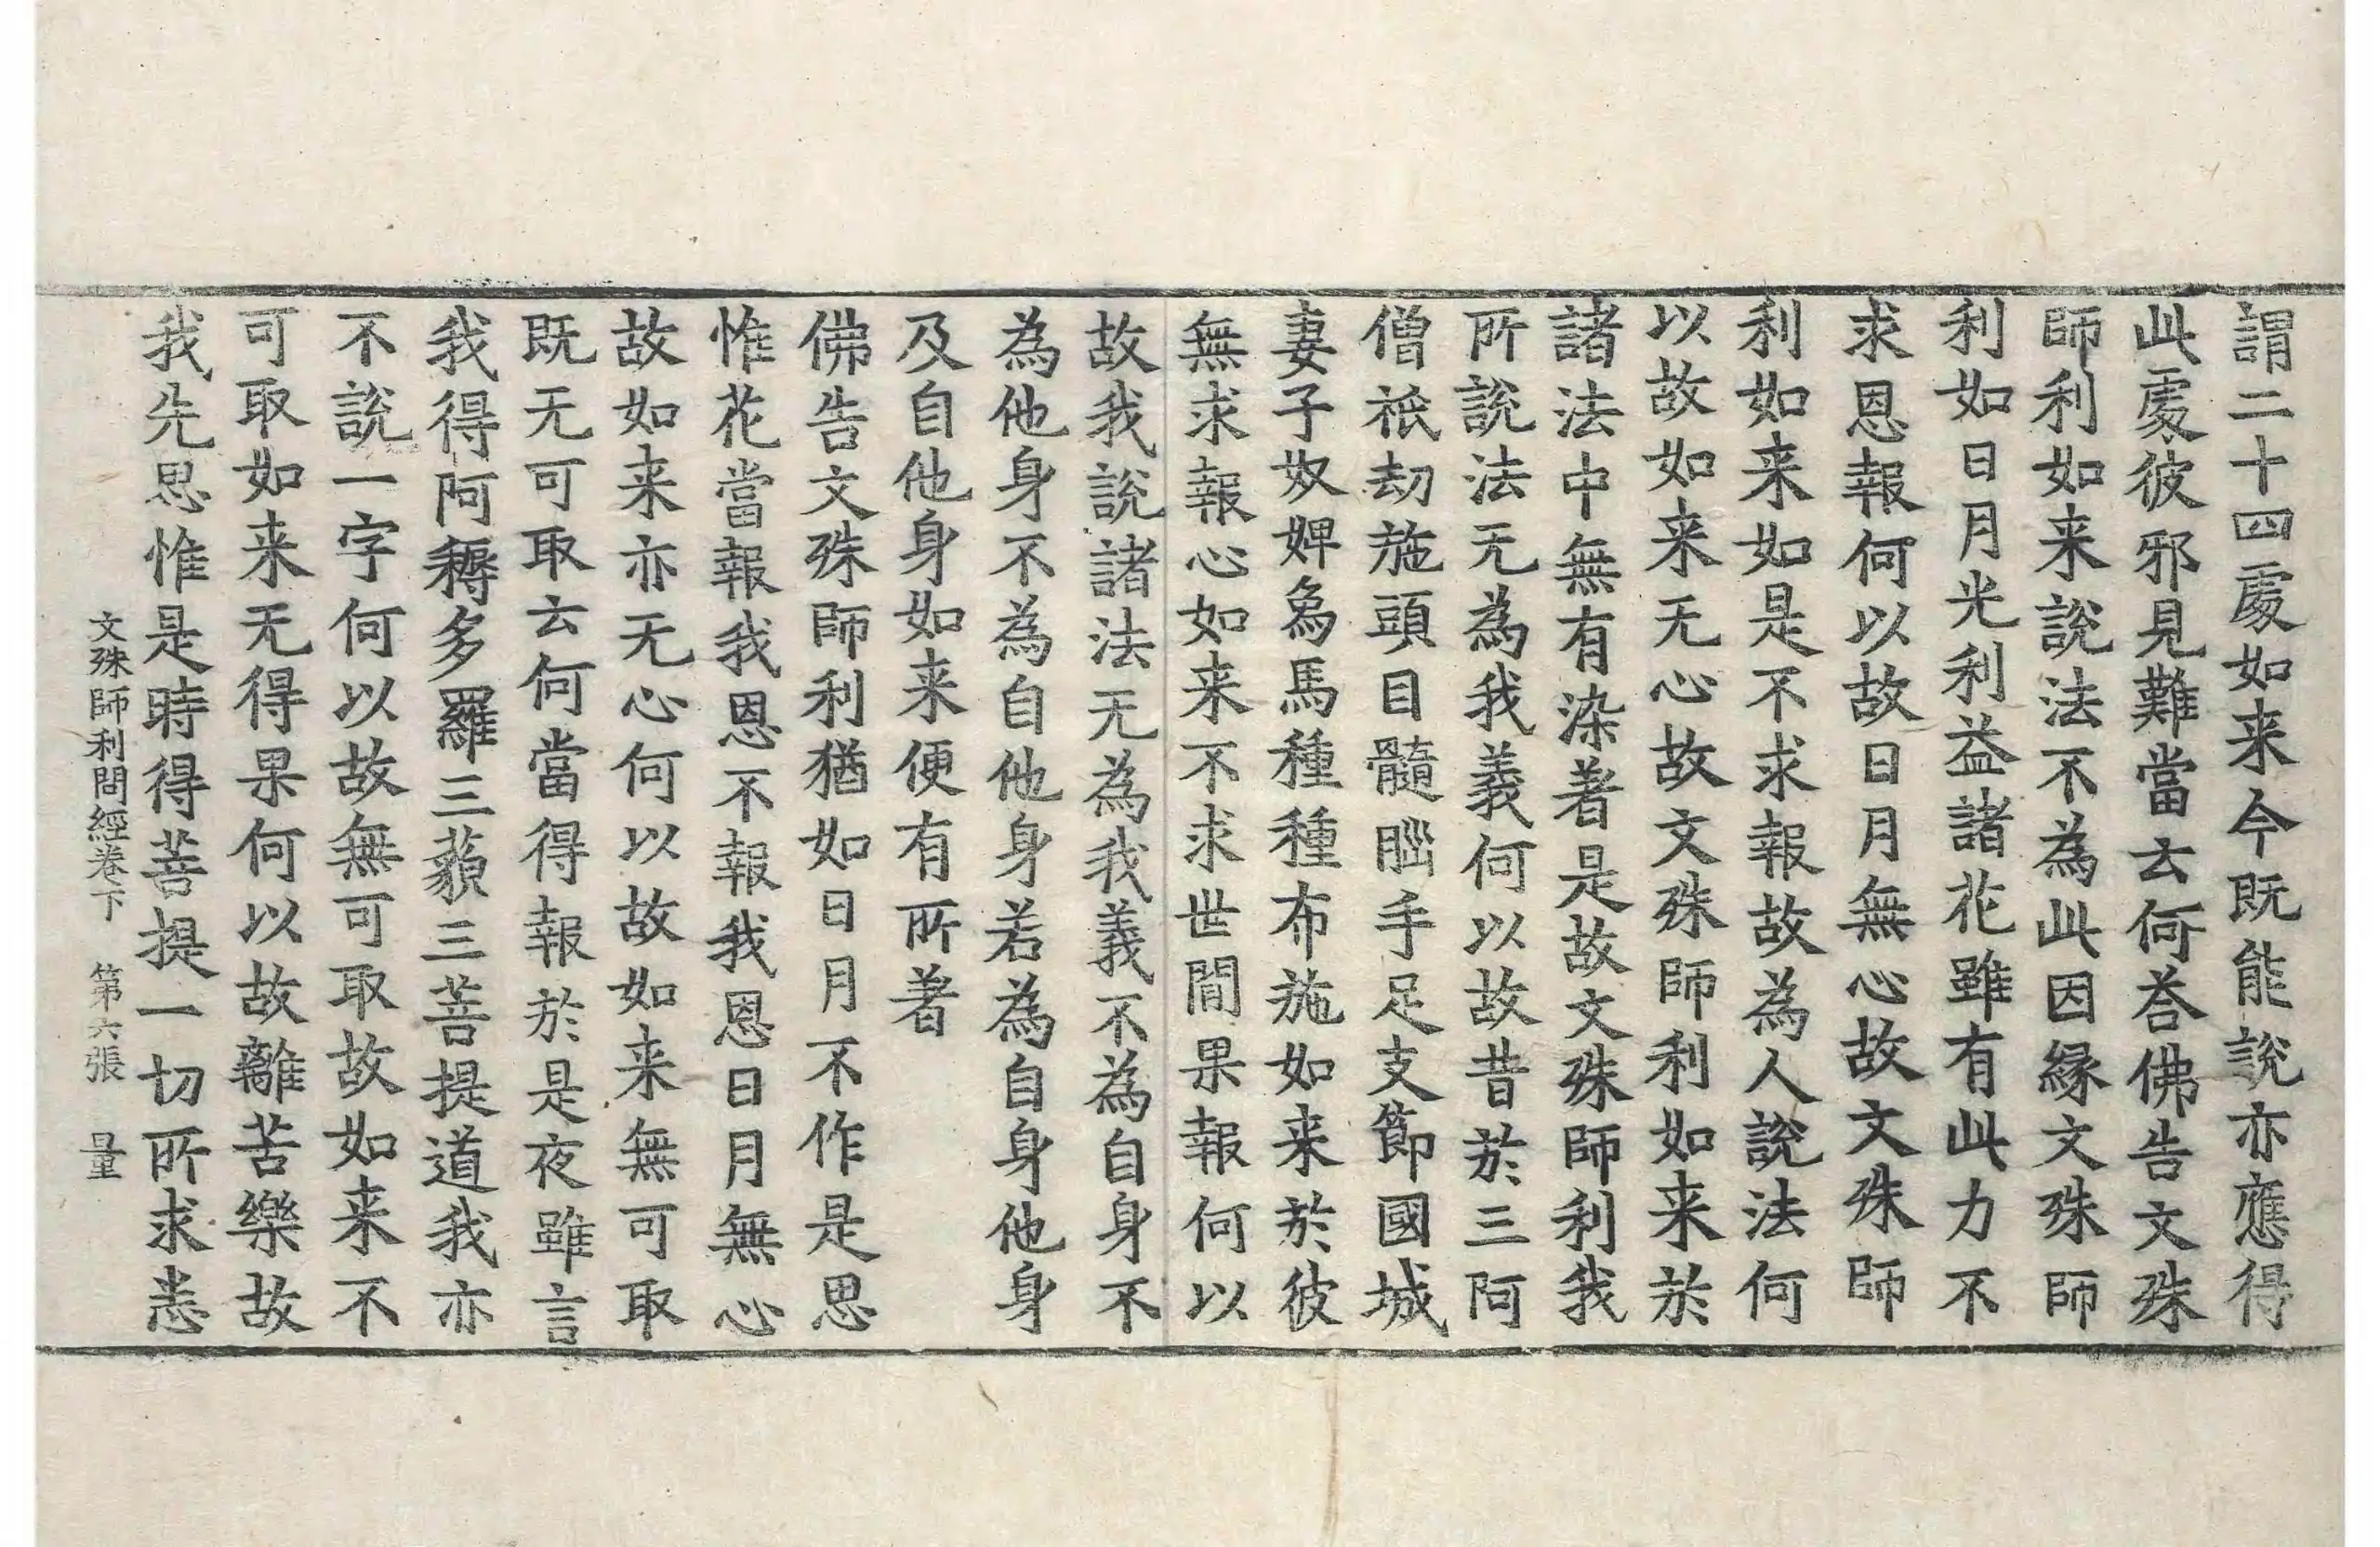 謂二十四處如来今既能說亦應得
此處彼邪見難當云何荅佛告文殊
師利如来說法不為此因縁文殊師
利如日月光利益諸花雖有此力不
求恩報何以故日月無心故文殊師
利如来如是不求報故為人說法何
以故如来无心故文殊師利如来於
諸法中無有染著是故文殊師利我
所說法无為我義何以故昔於三阿
僧祇劫施頭目髓𦛁手足支節國城
妻子奴婢象馬種種布施如来於彼
無求報心如来不求世間果報何以
故我說諸法无為我義不為自身不
為他身不為自他身若為自身他身
及自他身如来便有所著
佛告文殊師利猶如日月不作是思
惟花當報我恩不報我恩日月無心
故如来亦无心何以故如来無可取
既无可取云何當得報於是夜雖言
我得阿耨多羅三藐三菩提道我亦
不說一字何以故無可取故如来不
可取如来无得果何以故離苦樂故
我先思惟是時得菩提一切所求悉
文殊師利問經卷下　第六張　量